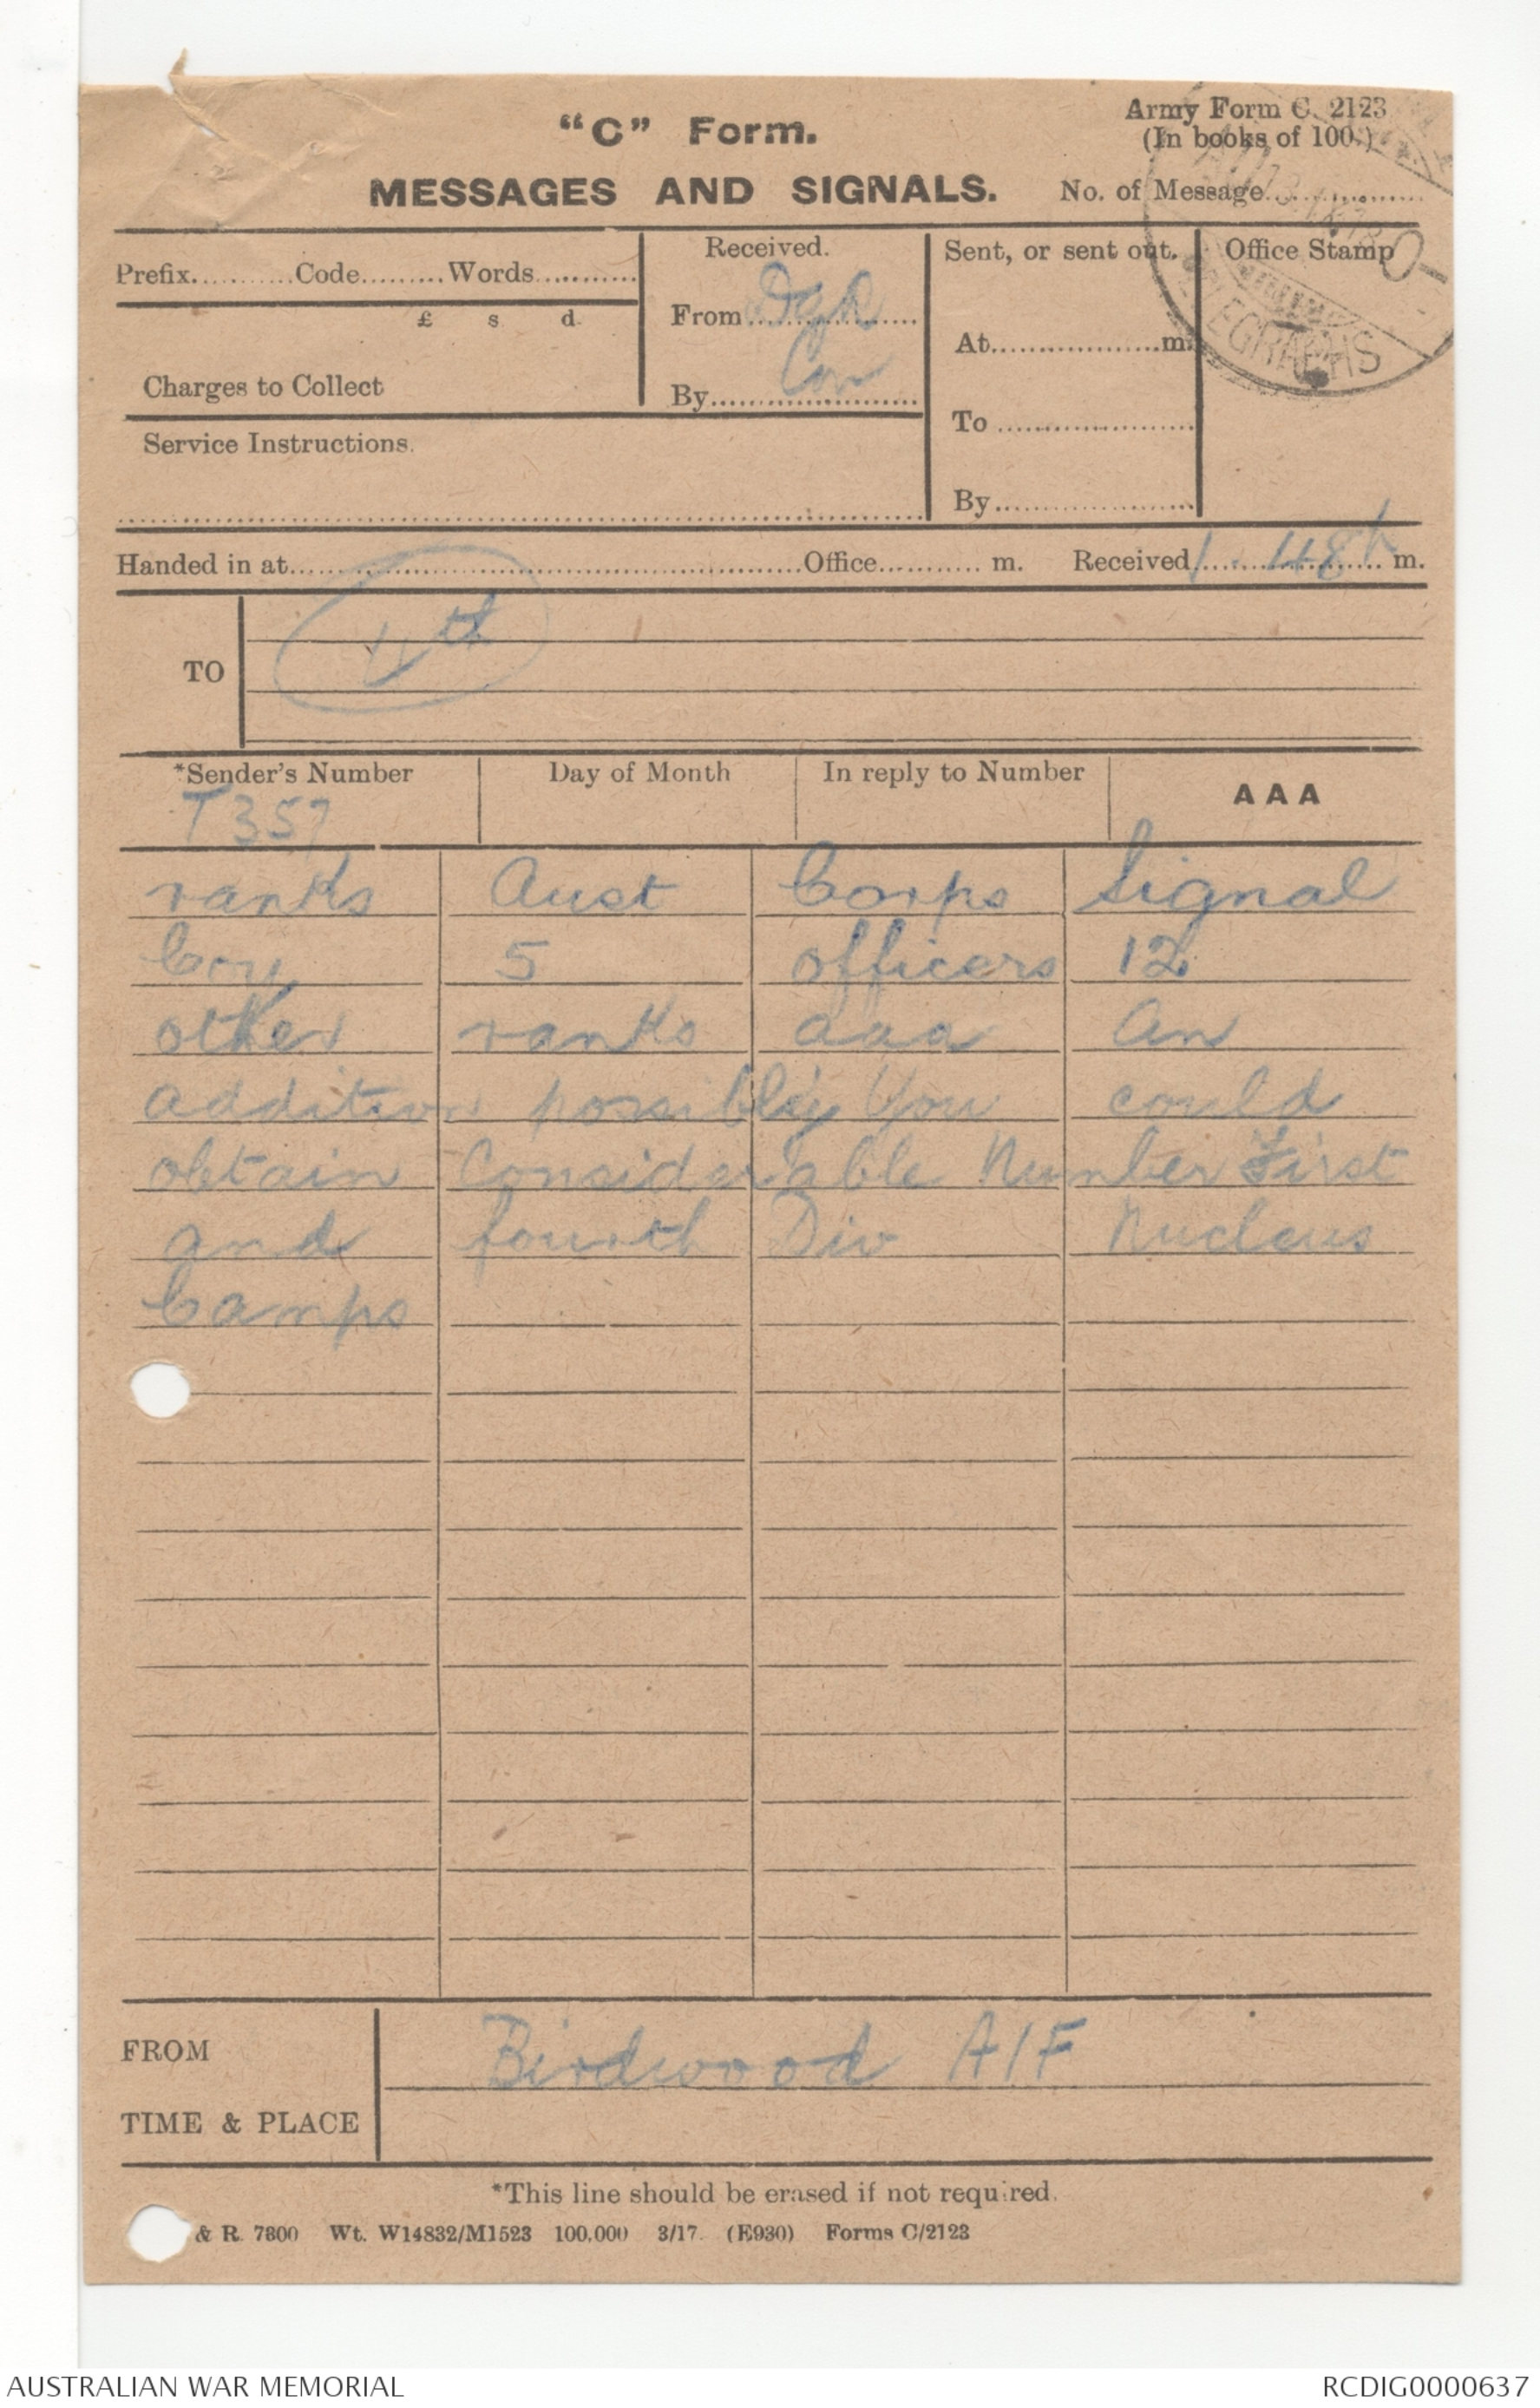 "C" Form.
Army Form C. 2123
(In books of 100.)
MESSAGES AND SIGNALS.
No. of Message
Prefix Code Words
Received.
Sent, or sent out.
Office Stamp
£ s d.
From
At m.
TELEGRAPHS
Charges to Collect
By
To
Service Instructions.
By
Handed in at Office m. Received 1.48 m.
TO
*Sender's Number
Day of Month
In reply to Number
AAA
T357
ranks Aust Corps Signal
Coy 5 officers 12
other ranks aaa an
addition possibly You could
obtain Considerable Number First
and fourth Div Nucleus
Camps
FROM Birdwood AIF
TIME & PLACE
*This line should be erased if not required.
& R. 7800 Wt. W14832/M1523 100,000 3/17. (E930) Forms C/2123
AUSTRALIAN WAR MEMORIAL
RCDIG0000637